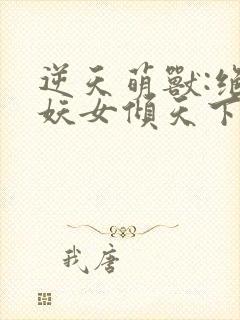 逆天萌獸:絕
妖女傾天下
我唐